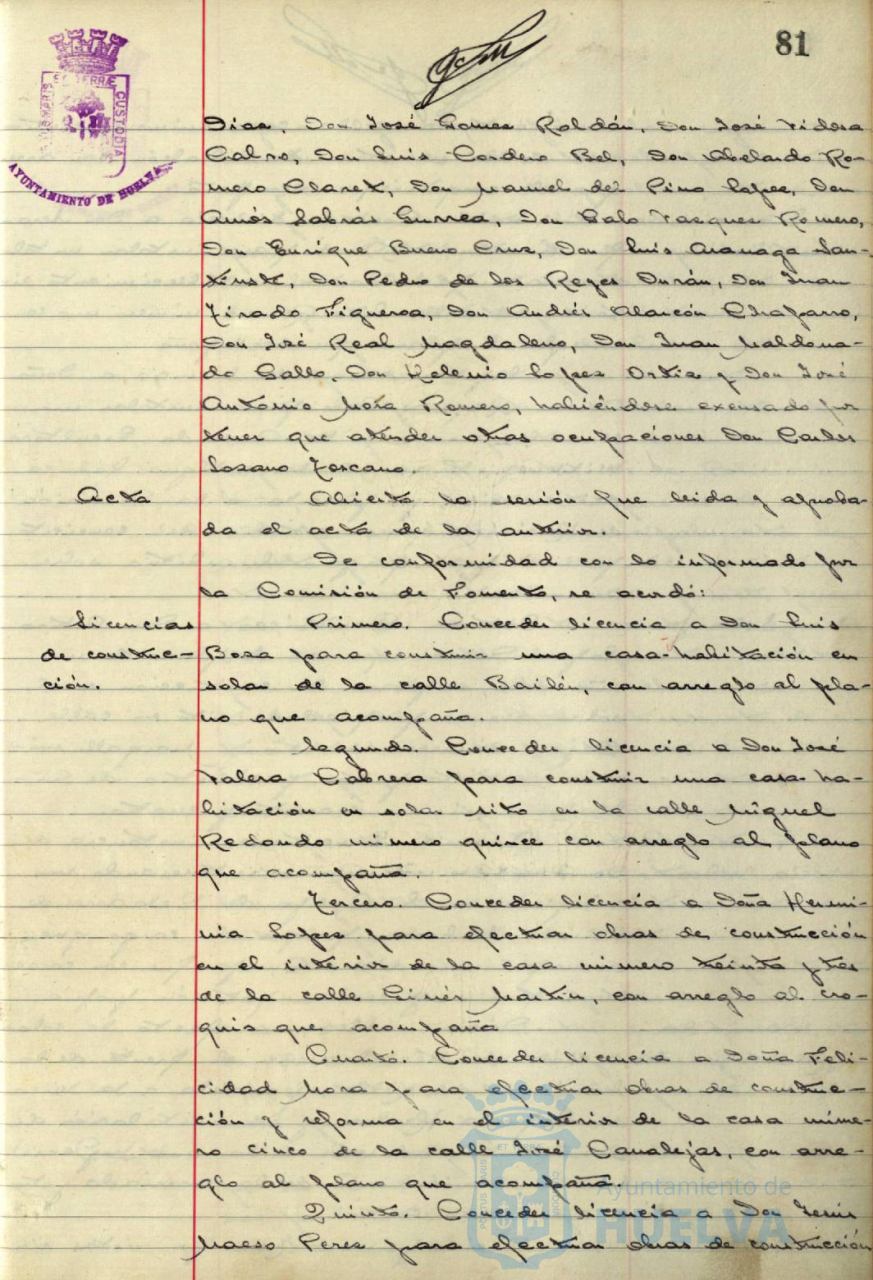 81
PORTUS MARIS ET TERRÆ CUSTODIA
AYUNTAMIENTO DE HUELVA
Dias, Don José Gomez Roldán, Don José Tidosa
Calvo, Don Luis Cordero Bel, Don Abelardo Ro-
mero Claret, Don Manuel del Pino Lopez, Don
Amós Sabrás Gurrea, Don Galo Vazquez Romero,
Don Enrique Bueno Cruz, Don Luis Aranaga San-
Don Pedro de los Reyes Durán, Don Juan
Tirado Figueroa, Don Andrés Alarcón Chaparro,
Don José Real Magdaleno, Don Juan Maldona-
do Gallo, Don Helenio Lopez Ortiz y Don José
Antonio Mora Romero, habiéndose excusado por
tener que atender otras ocupaciones Don Carlos
Lozano Toscano.
Acta
Abierta la sesión fue leida y aproba-
da el acta de la anterior.
De conformidad con lo informado por
la Comisión de Fomento, se acordó:
Licencias
de construc-
ción.
Primero. Conceder licencia a Don Luis
Boza para construir una casa-habitación en
solar de la calle Bailén, con arreglo al pla-
no que acompaña.
Segundo. Conceder licencia a Don José
Valera Cabrera para construir una casa-ha-
bitación en solar sito en la calle Miguel
Redondo número quince con arreglo al plano
que acompaña.
Tercero. Conceder licencia a Doña Hermi-
nia Lopez para efectuar obras de construcción
en el interior de la casa número treinta y tres
de la calle Ginés Martin, con arreglo al cro-
quis que acompaña
Cuarto. Conceder licencia a Doña Feli-
cidad Mora para efectuar obras de construc-
ción y reforma en el interior de la casa núme-
ro cinco de la calle José Canalejas, con arre-
glo al plano que acompaña.
Quinto. Conceder licencia a Don Jesús
Maeso Perez para efectuar obras de construcción
Ayuntamiento de
HUELVA